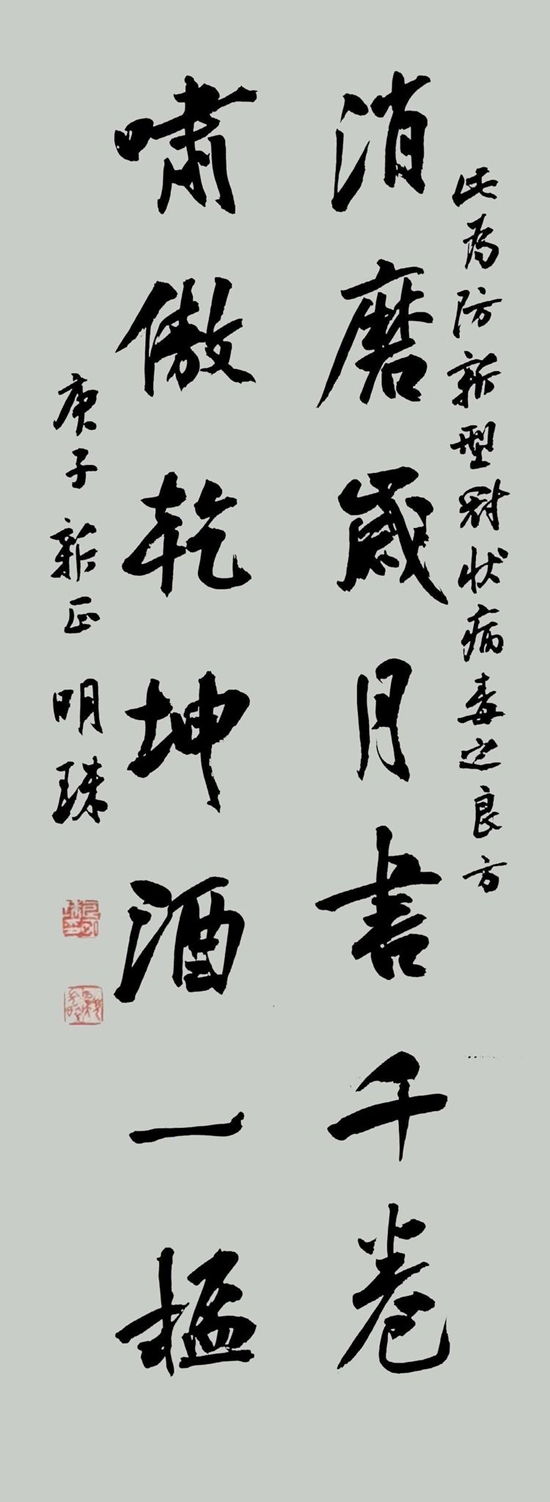 此为防新型冠状病毒之良方
消磨歲月書千卷
嘯傲乾坤酒一榼
庚子新正 明珠